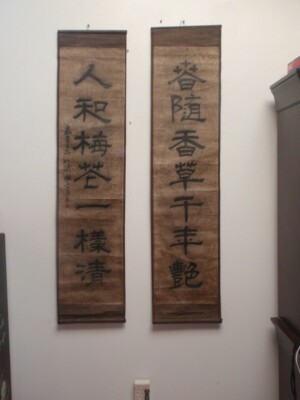 春随香草千年艷
人和梅花一樣清